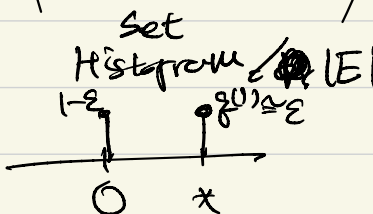 Set
Histogram |E|
1-ε q(1)≈ε
0 x